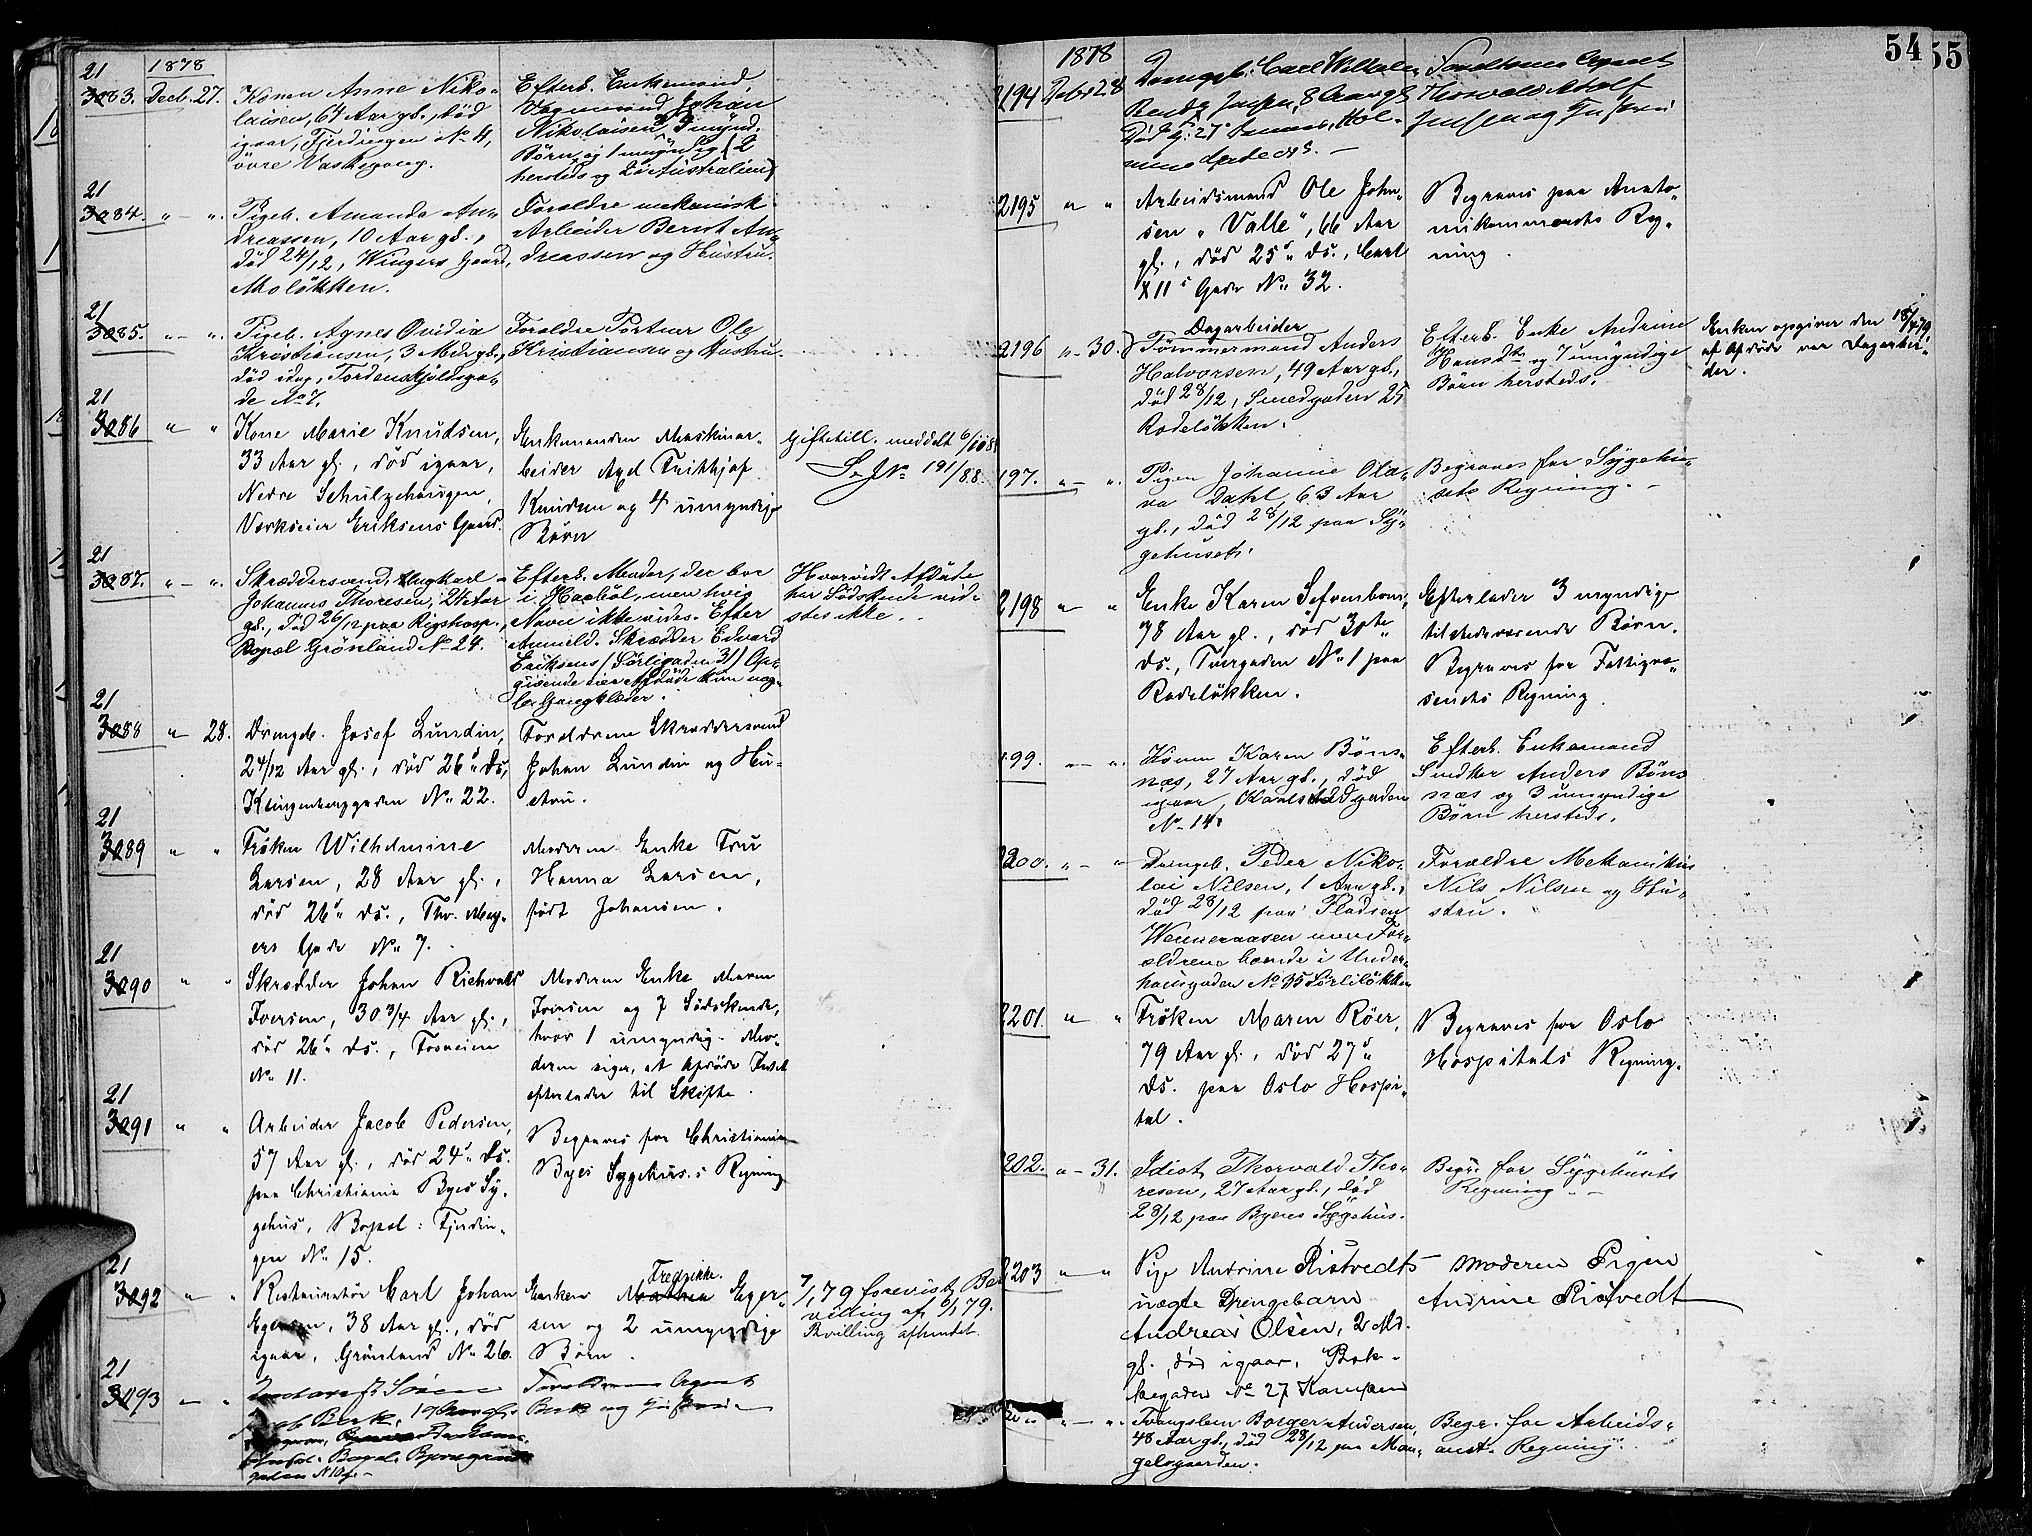 54
55
1878
21
3083. Decb. 27. Konen Anne Niko-
laisen, 64 Aar gl., död
igaar, Fjerdingen No 4,
övre Vaskegang.
Efterl. Enkemand,
Vægmand Johan
Nikolaisen, 3 mynd.
Børn og 1 umyndig (2
hersteds og 2 i Australien)
21
3084. " - ". Pigeb. Amanda An-
dreassen, 10 Aar gl.,
död 24/12, Wingers Gaard,
Møløkken.
Forældre mekanisk
Arbeider Bernt An-
dreassen og Hustru.
21
3085. " - ". Pigeb. Agnes Ovidia
Kristiansen, 3 Mdr gl.,
död idag, Tordenskjoldsga-
de No 7.
Forældre Portner Ole
Kristiansen og Hustru
21
3086 " " Kone Marie Knudsen,
33 Aar gl., död igaar,
Nedre Schulzehaugen,
Værkseier Eriksens Gaard.
Enkemanden Maskinar-
beider Axel Frithjof
Knudsen og 4 umyndige
Börn
Giftetill. meddelt 6/10 8
Se J No 191/88.
21
3087. " - ". Skræddersvend Karl
Johannes Thoresen, 24 Aar
gl., död 26/12 paa Rigshosp.,
Bopæl Grönland No 24.
Efterl. Moder, der bor
i Hacöl, men hvis
Navn ikke vides. Efter
Anmeld. Skrædder Edvard
Eriksens (Sörligaden 31) Op-
givende eier Afdöde kun nog-
le Gangklæder.
Hvorvidt Afdöde
har Södskende vid-
stes ikke.
21
3088 " 28. Drengeb. Josef Lundin,
2 4/12 Aar gl., död 26de ds,
Klingenberggaden No 22.
Forældrene Skræddersvend
Johan Lundin og Hu-
stru.
21
3089 " " Frøken Wilhelmine
Larsen, 28 Aar gl.,
död 26de ds., Thv. Mey-
ers Gade No 7.
Moderen Enke Fru
Hanna Larsen,
född Johansen.
21
3090 " " Skrædder Johan Richvald
Iversen, 30 3/4 Aar gl.,
död 26de ds., Fosveien
No 11.
Moderen Enke Maren
Iversen og 7 Södskende,
hvor 1 umyndig. Mo-
deren siger, at Afdöde Intet
efterlader til Skifte.
21
3091 " " Arbeider Jacob Pedersen,
57 Aar gl., död 24de ds.
paa Christiania Byes Sy-
gehus, Bopæl: Fjerdin-
gen No 15.
Begraves for Christiania
Byes Sygehus.s Regning
21
3092 " " Restauratør Carl Johan
Egersen, 38 Aar gl., död
igaar, Grönland No 26.
Fredrikke.
Enken Eger-
sen og 2 umyndige
Börn.
7/1 79 forevist Be-
villing af 6/1 79.
Bevilling afhentet.
21
3093 " "
Forældrene Agent
Berk og Hustru
1878
2194 Debr 28 Drengeb. Carl Wilhelm
Bentz Jensen, 8 Aar gl
Död d: 27
Forældrene Agent
Thorvald Adolf
Jensen og Hustru
2195 " " Arbeidsmand Ole John-
sen "Valle", 66 Aar
gl., död 25de ds., Carl
XII s Gade No 32.
Begraves paa Anato-
mikammerets Reg-
ning.
Dagarbeider
2196 " - 30. Tömmermand Anders
Halvorsen, 49 Aar gl.,
död 28/12, Smedgaden 25
Rodeløkken.
Efterl. Enke Andrine
Hansdtr. og 7 umyndige
Börn hersteds.
Enken opgiver den 18/4 79
at Afdöde var Dagarbei-
der.
197. " - ". Pigen Johanne Ola-
va Dahl, 63 Aar
gl., död 28/12 paa Sy-
gehuset.
Begraves for Sygehu-
sets Regning. -
2198 " " Enke Karen Sefvenbom,
78 Aar gl., död 30te
ds., Tuegaden No 1 paa
Rodeløkken.
Efterlader 3 myndige
tilstedeværende Börn.
Begraves for Fattigvæ-
senets Regning.
199. - ". Konen Karen Böns-
næs, 27 Aar gl., död
igaar, Karlstadgaden
No 14.
Efterl. Enkemand
Snedker Anders Böns
næs og 3 umyndige
Börn hersteds.
2200. " - " Drengeb. Peder Niko-
lai Nilsen, 1 Aar gl.,
död 28/12 paa Pladsen
Wenneraasen men For-
ældrene boende i Under-
haugsgaden No 35 Sörliløkken
Forældre Mekanikus
Nils Nilsen og Hu-
stru.
2201. " " Frøken Maren Röer,
79 Aar gl., död 27de
ds. paa Oslo Hospi-
tal.
Begraves for Oslo
Hospitals Regning.
2202. " - 31. Idiot Thorvald Tho-
resen, 27 Aar gl., död
28/12 paa Byens Sygehus.
Begr. for Sygehusets
Regning. -
2203 " " Pige Andrine Ristvedts
uægte Drengebarn
Andreas Olsen, 2 Md.
gl., död igaar, Bak-
kegaden No 27 Kampen
Moderen Pigen
Andrine Ristvedt
" - ". Tvangslem Borger Andersen,
48 Aar gl., död 28/12 paa Man-
gelsgaarden.
Begr. for Arbeids-
anst. Regning.